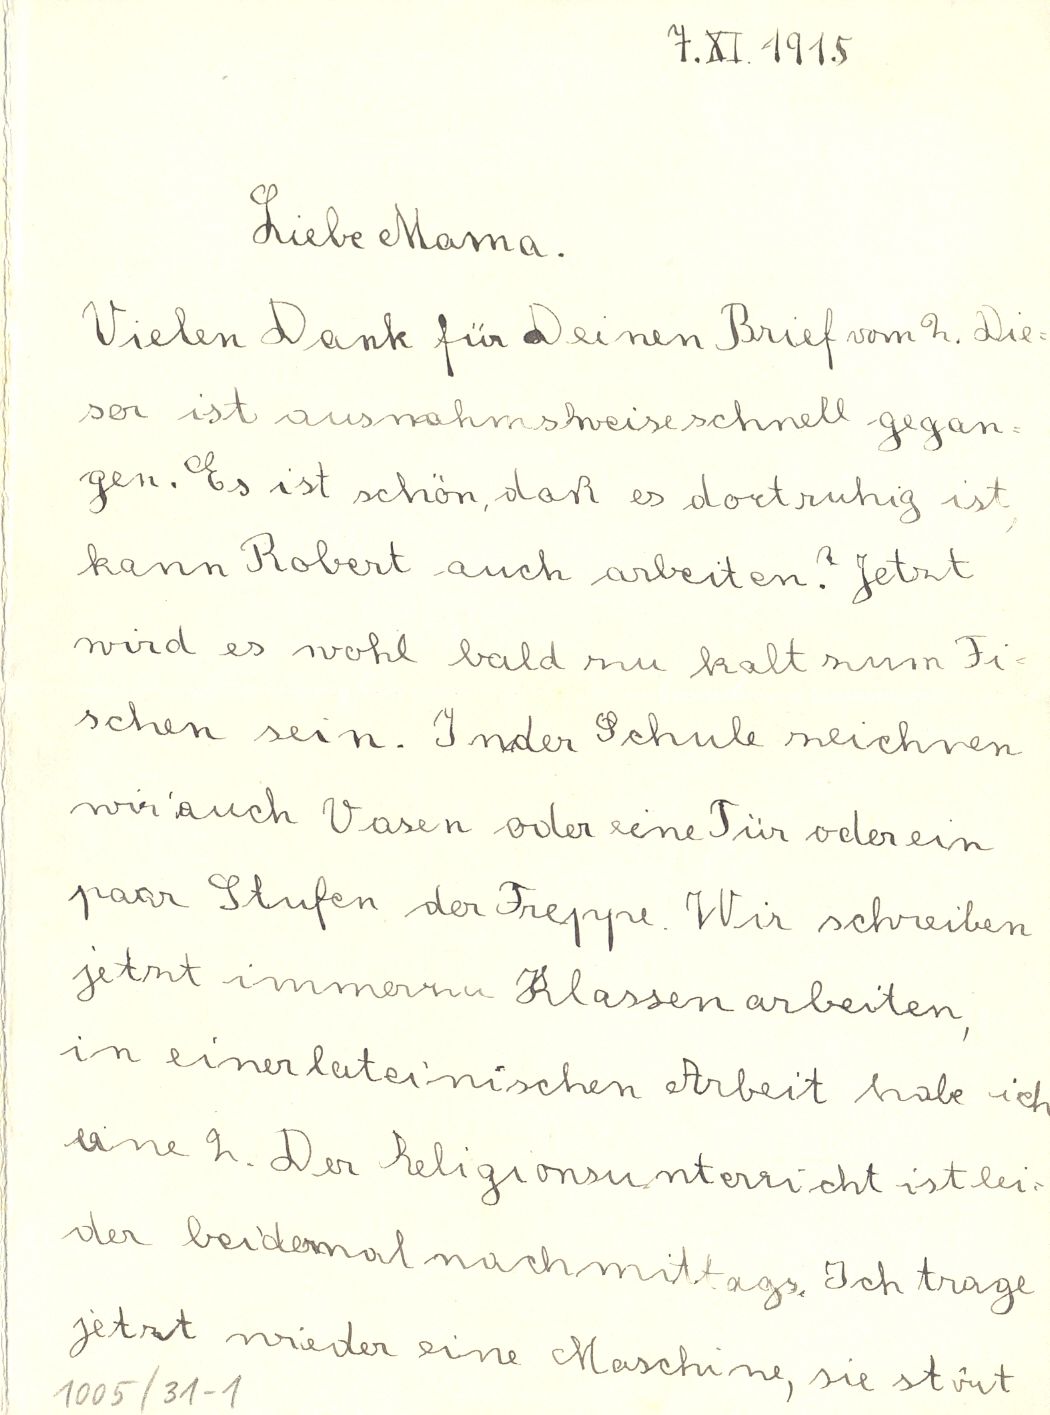 7. XI. 1915
Liebe Mama.
Vielen Dank für Deinen Brief vom 2. Die=
ser ist ausnahmsweise schnell gegan=
gen. Es ist schön, daß es dort ruhig ist,
kann Robert auch arbeiten? Jetzt
wird es wohl bald zu kalt zum Fi=
schen sein. In der Schule zeichnen
wir auch Vasen oder eine Tür oder ein
paar Stufen der Treppe. Wir schreiben
jetzt immerzu Klassenarbeiten,
in einer lateinischen Arbeit habe ich
eine 2. Der Religionsunterricht ist lei=
der beidemal nachmittags. Ich trage
jetzt wieder eine Maschine, sie stört
1005/31-1